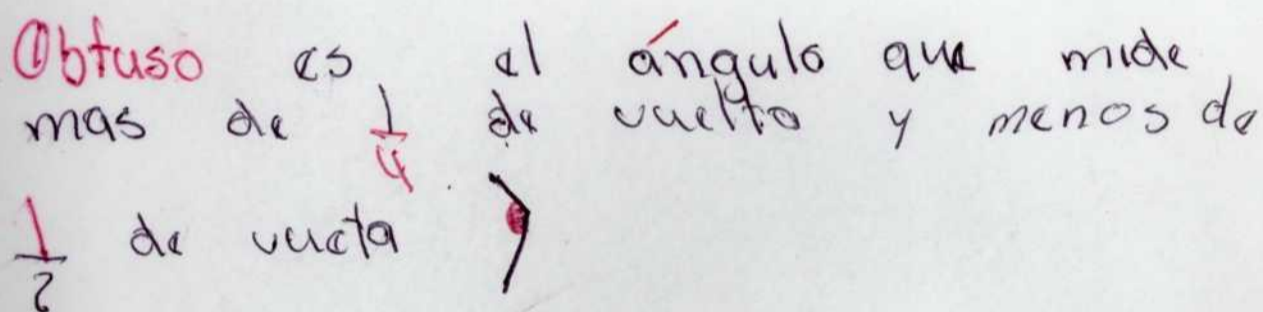 Obtuso es el ángulo que mide
mas de 1/4 de vuelta y menos de
1/2 de vueta